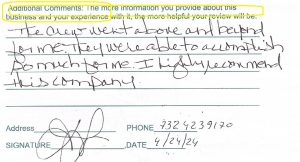 Additional Comments: The more information you provide about this
business and your experience with it, the more helpful your review will be.
The crew went above and beyond
for me. They were able to accomplish
so much for me. I highly recommend
this company.
Address PHONE 7324239170
SIGNATURE DATE 4/24/24